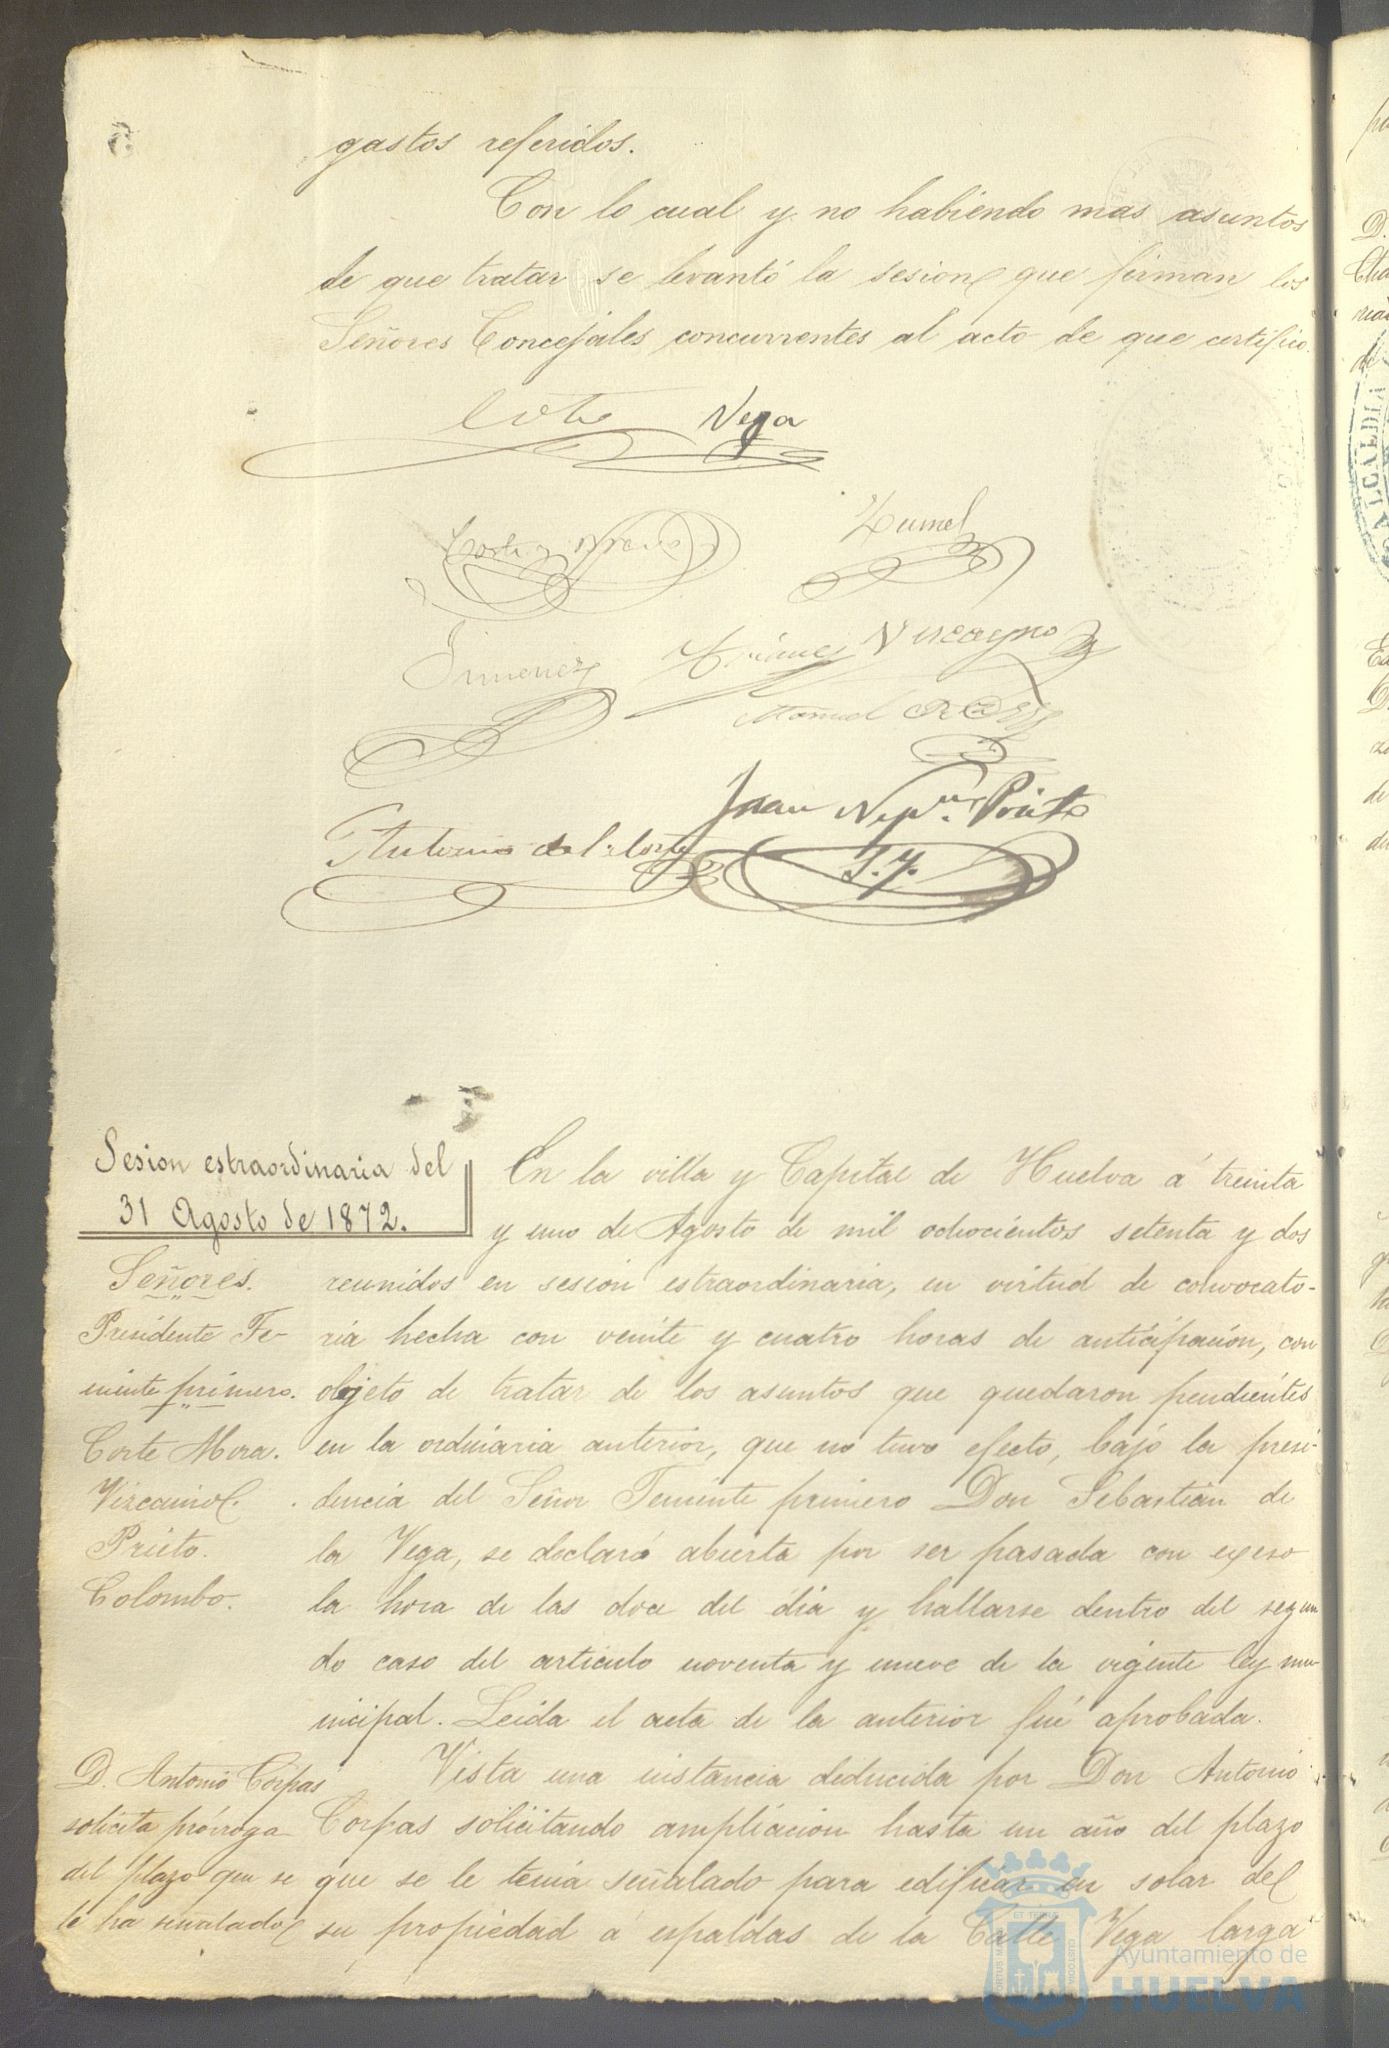 gastos referidos.
Con lo cual y no habiendo mas asuntos
de que tratar se levantó la sesion que firman los
Señores Concejales concurrentes al acto de que certifico.
Vega
Jimenez
Vizcayno
Manuel
Antonio de la Corte
Juan Nepno. Prieto
Sesion estraordinaria del
31 Agosto de 1872.
Señores.
Presidente Te-
niente primero.
Corte Mora.
Vizcaino.
Prieto.
Colombo.
En la villa y Capital de Huelva á treinta
y uno de Agosto de mil ochocientos setenta y dos
reunidos en sesion estraordinaria, en virtud de convocato-
ria hecha con veinte y cuatro horas de anticipacion, con
objeto de tratar de los asuntos que quedaron pendientes
en la ordinaria anterior, que no tuvo efecto, bajo la presi-
dencia del Señor Teniente primero Don Sebastian de
la Vega, se declaró abierta por ser pasada con exeso
la hora de las doce del dia y hallarse dentro del segun
do caso del articulo noventa y nueve de la vigente ley mu
nicipal. Leida el acta de la anterior fué aprobada.
D. Antonio Corpas
solicita prórroga
del plazo que se
le ha señalado
Vista una instancia deducida por Don Antonio
Corpas solicitando ampliacion hasta un año del plazo
que se le tenia señalado para edificar en solar de
su propiedad á espaldas de la Calle Vega larga
ALCALDIA
Ayuntamiento de
HUELVA